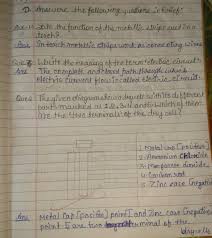 Answer the following questions in brief:
State the function of the metallic strips used in a torch?
Ans In torch metallic strips work as connecting wires
Write the meaning of the term 'electric circuit'.
Ans The complete and closed path through which
electric current flow is called electric circuit.
Que The given diagram shows a dry cell with its different
parts marked as 1, 2, 3, 4 and 5 which of them
are the two terminals of the dry cell?
1 Metal cap [positive]
2 Ammonium Chloride
3 Manganese dioxide
4 Carbon rod
5 Zinc case (negative
Ans Metal Cap [positive] point 1 and Zinc case (negative
point 5 are two terminal of the dry cell